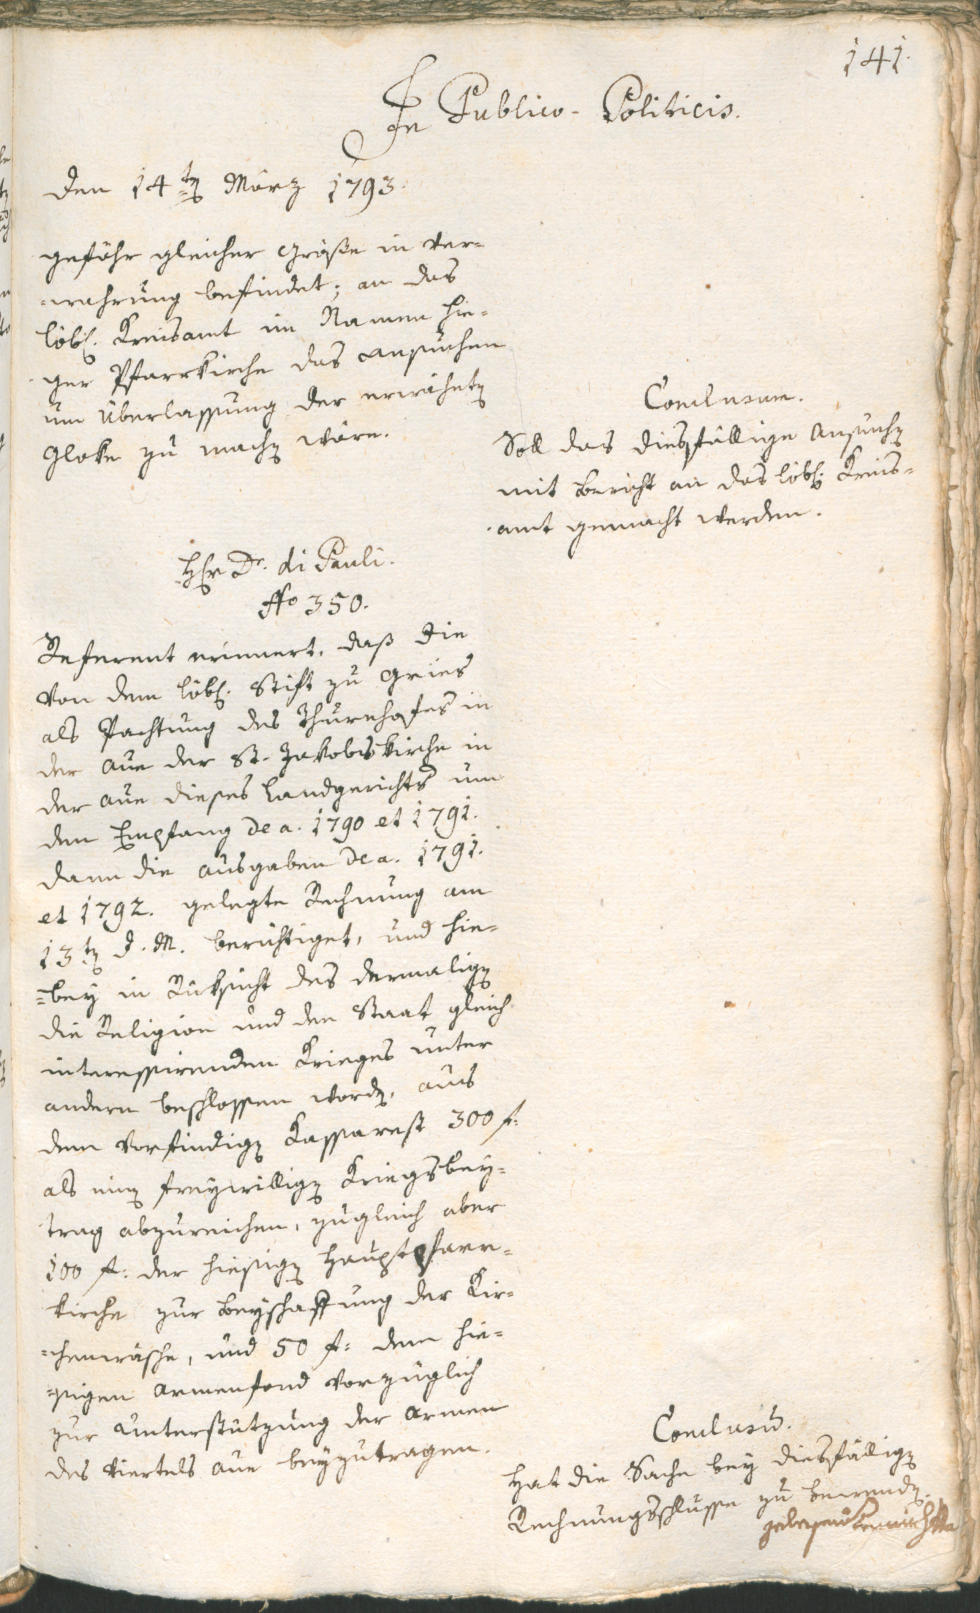 141.
In Publico-Politicis.
Den 14ten März 1793.
gefähr gleicher Größe in Ver=
=wahrung befindet; an das
löbl. Kreisamt im Namen hie=
ger Pfarrkirche das Ansuchen
um Überlassung der erwähnten
Gloke zu machen wäre.
Conclusum.
Soll das diesfällige Ansuchen
mit Bericht an das löbl. Kreis=
amt gemacht werden.
Hr Dr. di Pauli.
No 350.
Referent erinnert, daß die
von dem löbl. Stift zu Gries
als Pachtung des Thurnhofes in
der Aue der St. Jakobskirche in
der Aue dieses Landgerichts um
den Empfang de a. 1790 et 1791.
dann die Ausgaben de a. 1791.
et 1792. gelegte Rechnung am
13ten d. M. berichtiget, und hie=
=bey in Rüksicht des dermaligen
die Religion und den Staat gleich
interessirenden Krieges unter
andern beschlossen worden, aus
dem vorfindigen Kassarest 300 f.
als einen freywilligen Kriegsbey=
trag abzureichen, zugleich aber
100 f. der hiesigen Hauptpfarr=
kirche zur Beyschaffung der Kir=
=chenwäsche, und 50 f. dem hie=
=sigen Armenfond vorzüglich
zur Unterstützung der Armen
des Viertels Aue beyzutragen.
Conclusum.
Hat die Sache bey diesfälligen
Rechnungsschlusse zu bewenden.